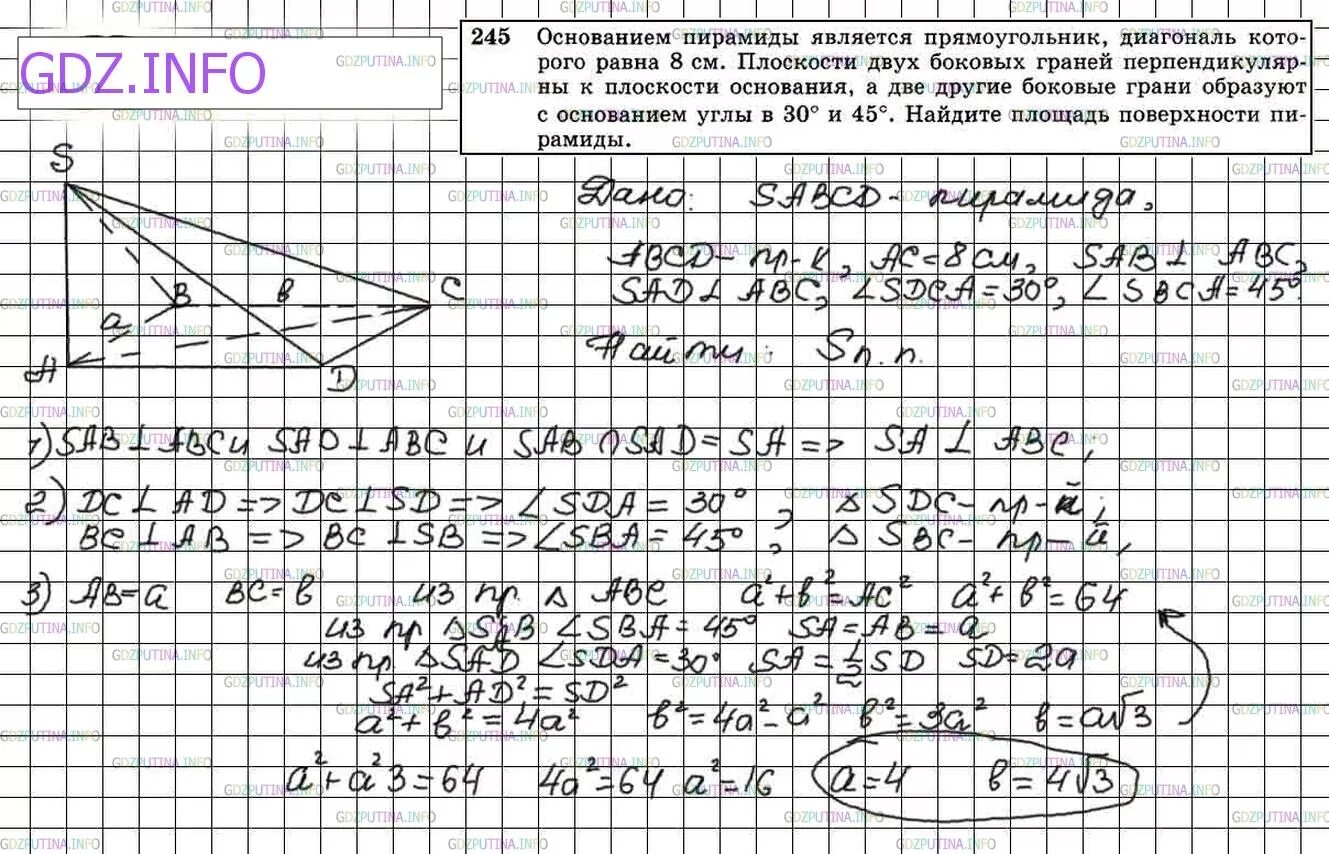 GDZ.INFO
245 Основанием пирамиды является прямоугольник, диагональ кото-
рого равна 8 см. Плоскости двух боковых граней перпендикуляр-
ны к плоскости основания, а две другие боковые грани образуют
с основанием углы в 30° и 45°. Найдите площадь поверхности пи-
рамиды.
S
B
в
C
a
A
D
Дано: SABCD - пирамида,
ABCD - пр-к, AC = 8 см, SAB ⊥ ABC,
SAD ⊥ ABC, ∠SDCA = 30°, ∠SBCA = 45°.
Найти: Sп.п.
1) SAB ⊥ ABC и SAD ⊥ ABC и SAB ∩ SAD = SA => SA ⊥ ABC;
2) DC ⊥ AD => DC ⊥ SD => ∠SDA = 30°, △ SDC - пр-й;
BC ⊥ AB => BC ⊥ SB => ∠SBA = 45°, △ SBC - пр-й,
3) AB = a BC = в из пр. △ ABC a² + в² = AC² a² + в² = 64
из пр △SAB ∠SBA = 45° SA = AB = a
из пр. △SAD ∠SDA = 30° SA = 1/2 SD SD = 2a
SA² + AD² = SD²
a² + в² = 4a² в² = 4a² - a² в² = 3a² в = a√3
a² + a²3 = 64 4a² = 64 a² = 16 a = 4 в = 4√3
GDZPUTINA.INFO